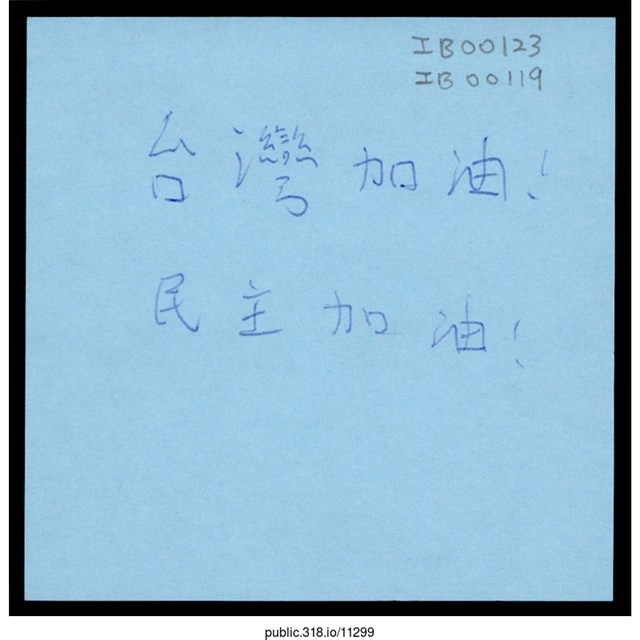 IB00123
IB00119
台灣加油!
民主加油!
public.318.io/11299